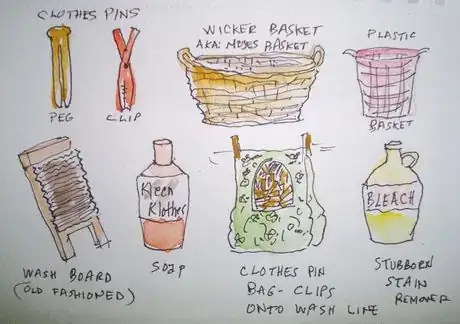 CLOTHES PINS
PEG
CLIP
WICKER BASKET
AKA: MOSES BASKET
PLASTIC
BASKET
WASH BOARD
(OLD FASHIONED)
Kleen
Klothes
SOAP
CLOTHES PIN
BAG - CLIPS
ONTO WASH LINE
BLEACH
STUBBORN
STAIN
REMOVER